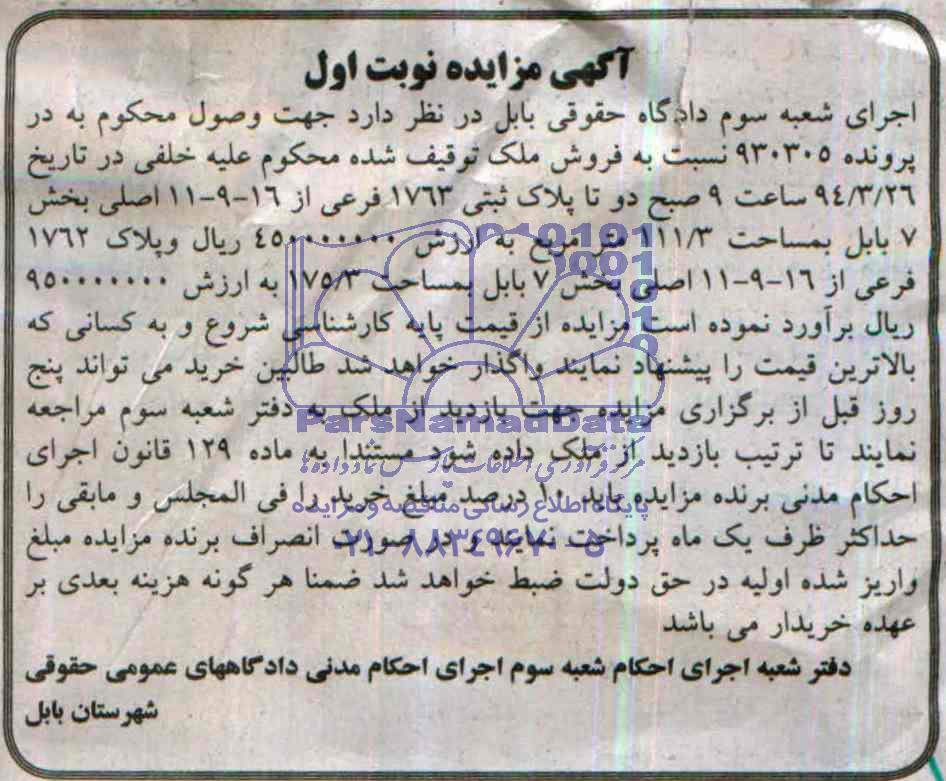 آگهی مزایده نوبت اول
اجرای شعبه سوم دادگاه حقوقی بابل در نظر دارد جهت وصول محکوم به در
پرونده ۹۳۰۳۰۵ نسبت به فروش ملک توقیف شده محکوم علیه خلفی در تاریخ
۹٤/۳/۲۶ ساعت ۹ صبح دو تا پلاک ثبتی ۱۷۶۳ فرعی از ۱۶-۹-۱۱ اصلی بخش
۷ بابل بمساحت ۱۱۱/۳ متر مربع به ارزش ٤۵۰۰۰۰۰۰۰ ریال وپلاک ۱۷۶۲
فرعی از ۱۶-۹-۱۱ اصلی بخش ۷ بابل بمساحت ۱۷۵/۳ به ارزش ۹۵۰۰۰۰۰۰۰۰
ریال برآورد نموده است مزایده از قیمت پایه کارشناسی شروع و به کسانی که
بالاترین قیمت را پیشنهاد نمایند واگذار خواهد شد طالبین خرید می تواند پنج
روز قبل از برگزاری مزایده جهت بازدید از ملک به دفتر شعبه سوم مراجعه
نمایند تا ترتیب بازدید از ملک داده شود مستندا به ماده ۱۲۹ قانون اجرای
احکام مدنی برنده مزایده باید ۱۰ درصد مبلغ خرید را فی المجلس و مابقی را
حداکثر ظرف یک ماه پرداخت نمایند و در صورت انصراف برنده مزایده مبلغ
واریز شده اولیه در حق دولت ضبط خواهد شد ضمنا هر گونه هزینه بعدی بر
عهده خریدار می باشد
دفتر شعبه اجرای احکام شعبه سوم اجرای احکام مدنی دادگاههای عمومی حقوقی
شهرستان بابل
ParsNamadData
مرکز فرآوری اطلاعات پارس نماد داده ها
پایگاه اطلاع رسانی مناقصه و مزایده
۰۲۱-۸۸۳٤۹۶۷۰-۵